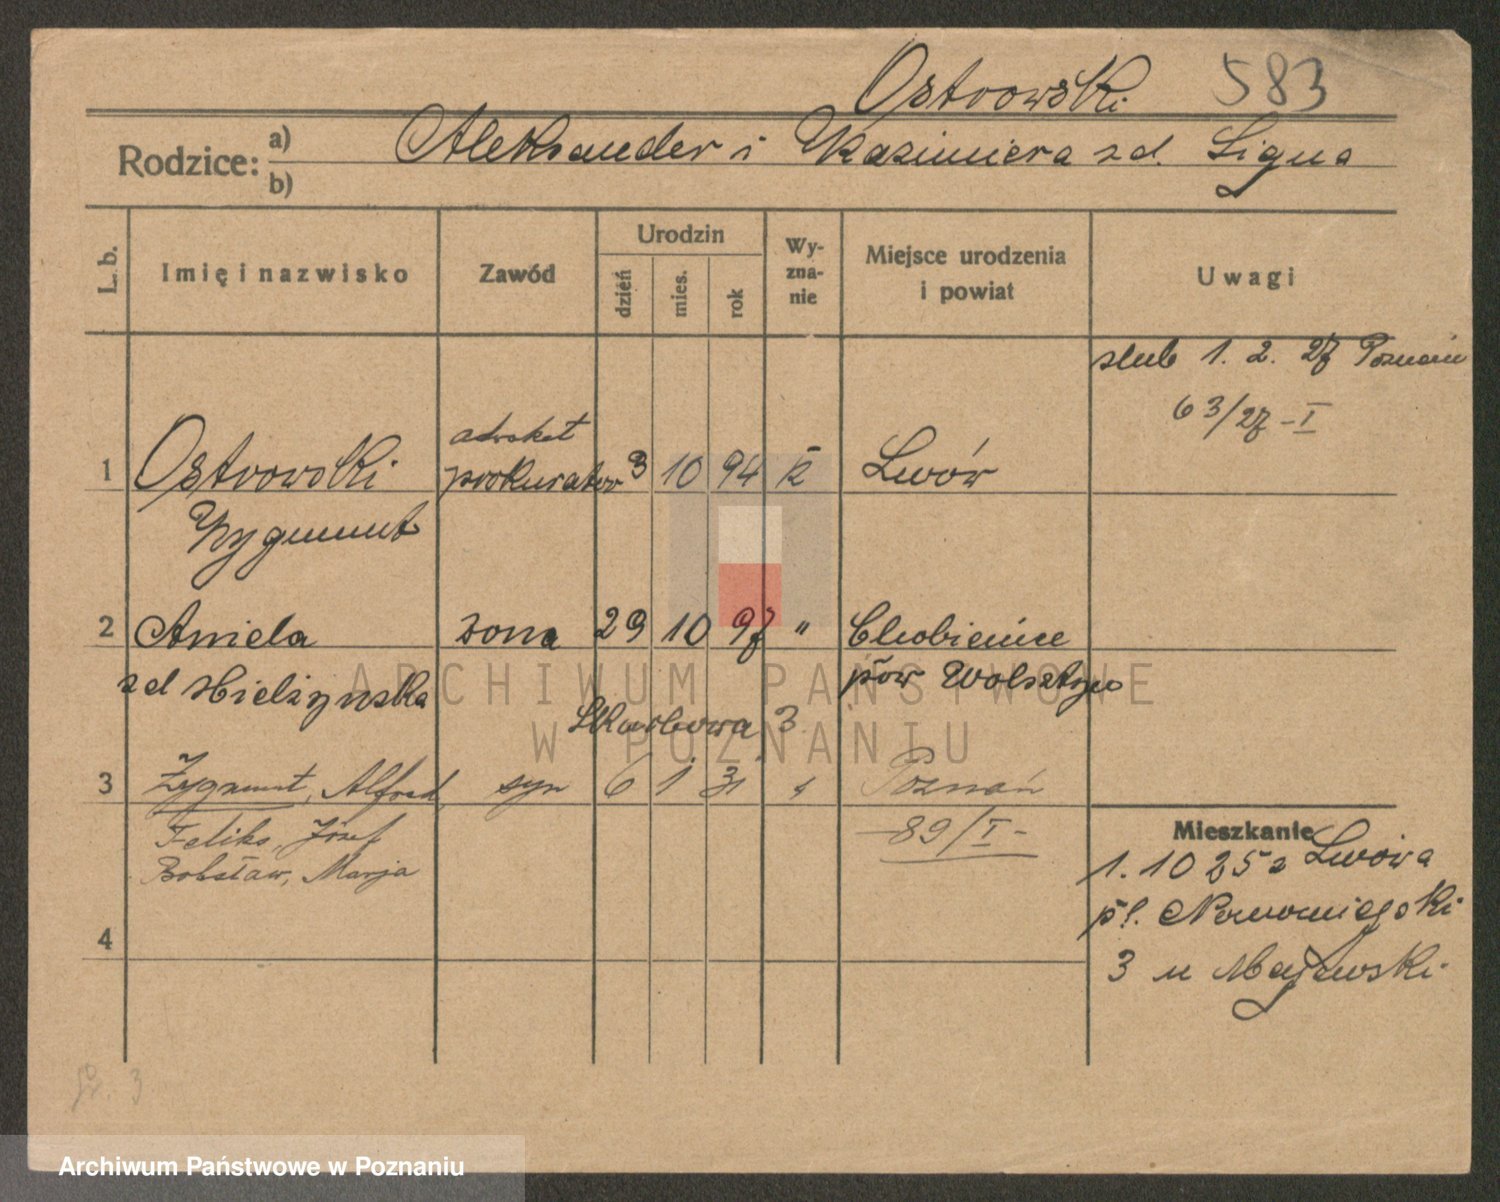 Ostrowski 583
Rodzice: a) Aleksander i Kazimiera zd. Ligua
b)
L. b. Imię i nazwisko Zawód Urodzin dzień mies. rok Wyznanie Miejsce urodzenia i powiat Uwagi
slub 1. 2. 27 Poznań
63/27 - I
adwokat
1 Ostrowski prokurator 3 10 94 k Lwów
Zygmunt
2 Aniela żona 29 10 97 " Chobienice
zd Mielżynska pow Wolsztyn
Skarbowa 3
3 Zygmunt, Alfred syn 6 1 31 " Poznań
Feliks, Józef -89/I-
Bobsław, Marja
Mieszkanie
1. 10 25 z Lwowa
pl. Nowomiejski
3 u Majewski
4
ARCHIWUM PAŃSTWOWE
W POZNANIU
Archiwum Państwowe w Poznaniu